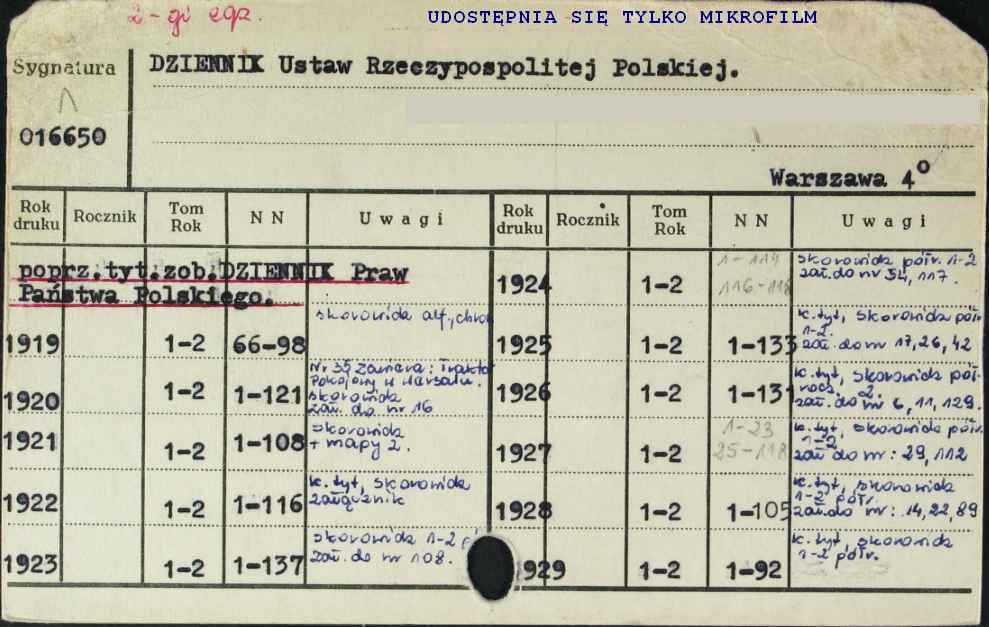 2-gi egz.
UDOSTĘPNIA SIĘ TYLKO MIKROFILM
Sygnatura
DZIENNIK Ustaw Rzeczypospolitej Polskiej.
016650
Warszawa 4°
Rok druku Rocznik Tom Rok N N Uwagi Rok druku Rocznik Tom Rok N N Uwagi
poprz.tyt.zob.DZIENNIK Praw
Państwa Polskiego.
skorowidz alf., chron
1919 1-2 66-98
Nr 35 zawiera: Traktat
Pokojowy w Wersalu.
skorowidz
zał. do nr 16
1920 1-2 1-121
skorowidz
+ mapy 2.
1921 1-2 1-108
k. tyt, skorowidz
załącznik
1922 1-2 1-116
skorowidz 1-2
zał. do nr 108.
1923 1-2 1-137
1-114
116-118
skorowidz półr. 1-2
zał. do nr 54, 117.
1924 1-2
k. tyt, skorowidz półr
1-2.
zał. do nr 17, 26, 42
1925 1-2 1-133
k. tyt, skorowidz pół-
rocz. 2.
zał. do nr 6, 11, 129.
1926 1-2 1-131
1-23
25-118
k. tyt, skorowidz półr.
1-2
zał do nr: 29, 112
1927 1-2
k. tyt, skorowidz
1-2 półr.
zał. do nr: 14, 22, 89
1928 1-2 1-105
k. tyt, skorowidz
1-2 półr.
929 1-2 1-92